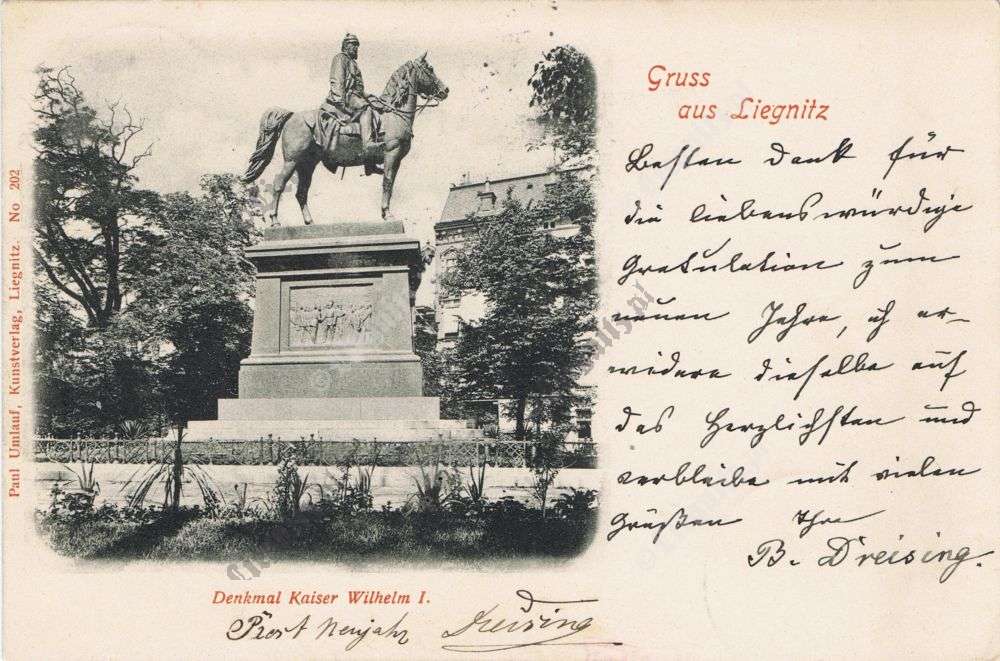 Paul Umlauf, Kunstverlag, Liegnitz. No 202
Gruss
aus Liegnitz
Besten Dank für
die liebenswürdige
Gratulation zum
neuen Jahre, ich er-
widere dieselbe auf
das Herzlichsten und
verbleibe mit vielen
Grüßen Ihre
B. Dreising.
Denkmal Kaiser Wilhelm I.
Prost Neujahr Dreising